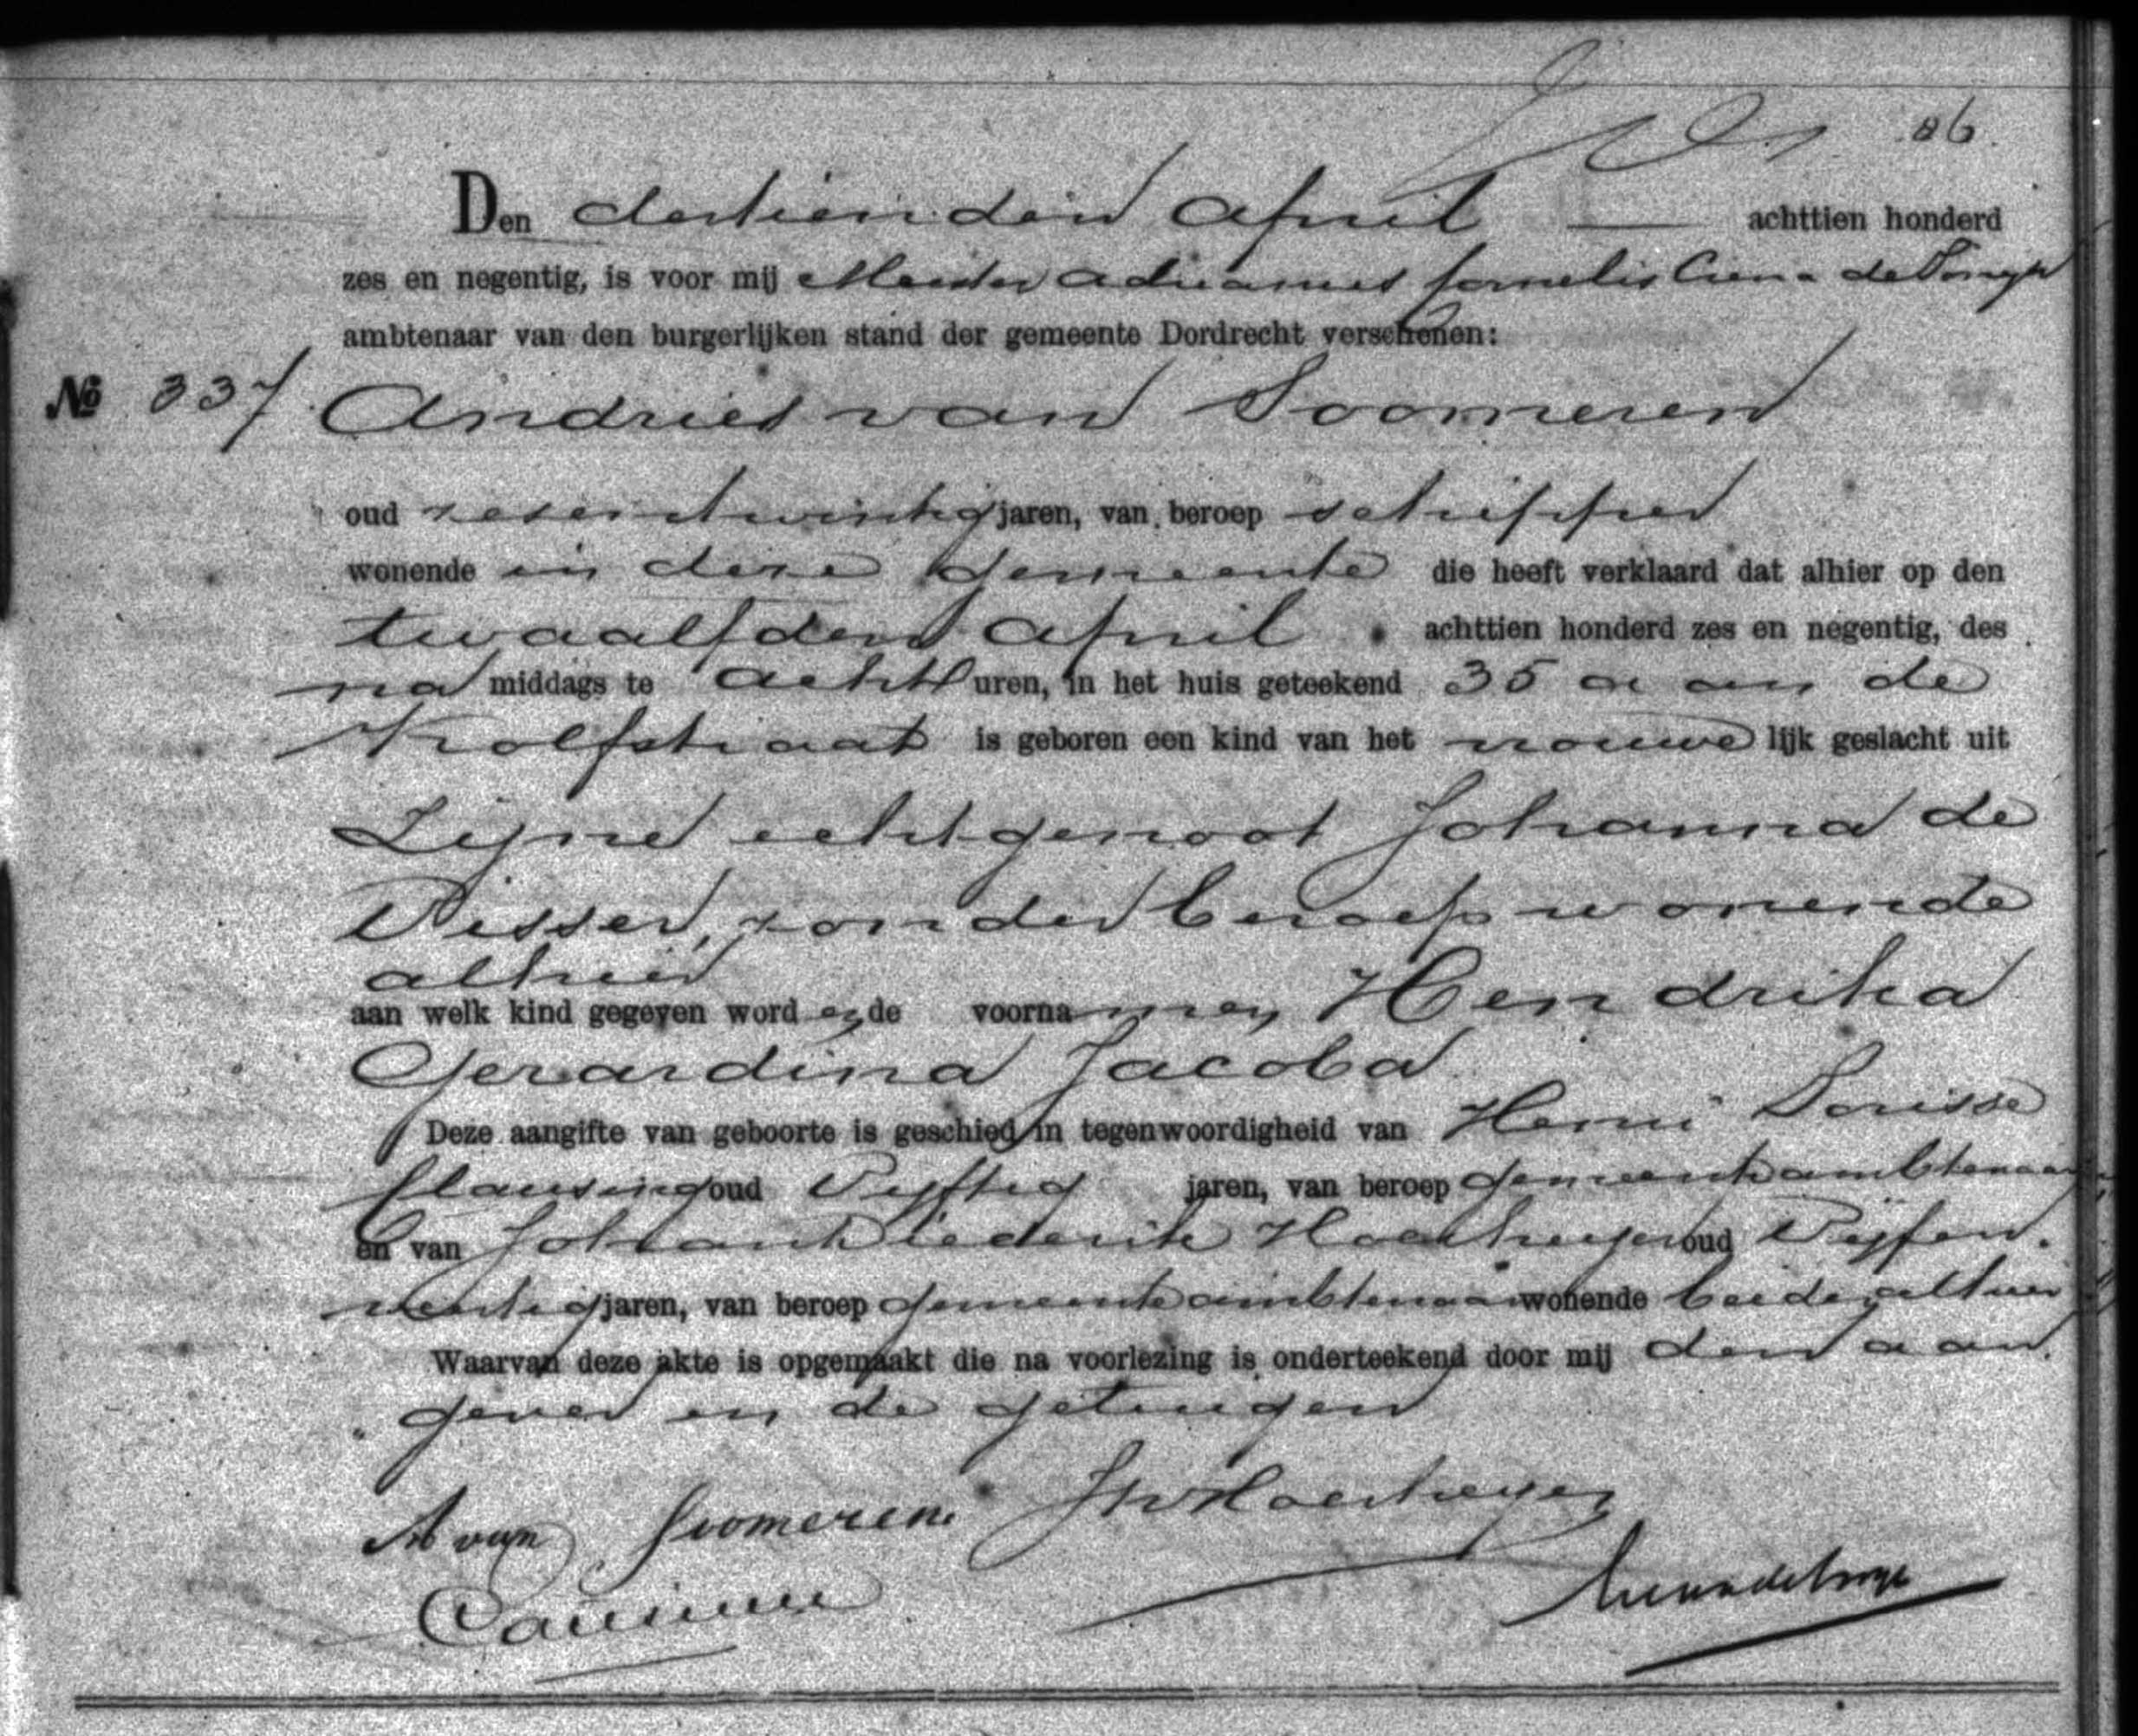 86
Den dertienden April achttien honderd
zes en negentig, is voor mij Meester Adrianus Cornelis Crena de Iongh
ambtenaar van den burgerlijken stand der gemeente Dordrecht verschenen:
№ 337 Andries van Soomeren
oud zesentwintig jaren, van beroep schipper
wonende in deze gemeente die heeft verklaard dat alhier op den
twaalfden April achttien honderd zes en negentig, des
na middags te acht uren, in het huis geteekend 35 a aan de
Kolfstraat is geboren een kind van het vrouwe lijk geslacht uit
Zijne echtgenoot Johanna de
Visser, zonder beroep wonende
alhier
aan welk kind gegeven word en de voorna men Hendrika
Gerardina Jacoba
Deze aangifte van geboorte is geschied in tegenwoordigheid van Henri
oud Vijftig jaren, van beroep gemeenteambtenaar
en van Johan Diederik oud Vijfen
veertig jaren, van beroep gemeenteambtenaar wonende beiden alhier
Waarvan deze akte is opgemaakt die na voorlezing is onderteekend door mij den aan
gever en de getuigen
A van Soomeren
Crena de Iongh